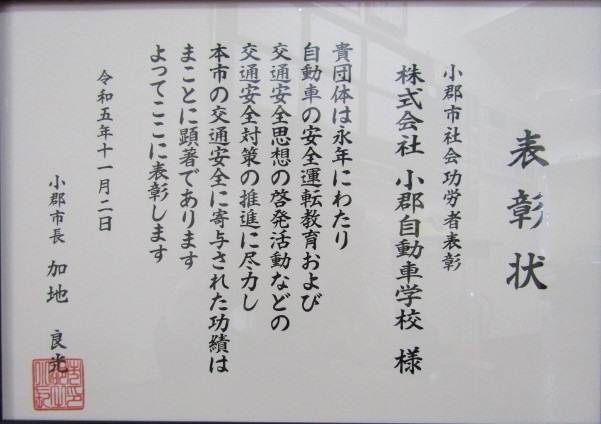 表彰状
小郡市社会功労者表彰
株式会社 小郡自動車学校 様
貴団体は永年にわたり
自動車の安全運転教育および
交通安全思想の啓発活動などの
交通安全対策の推進に尽力し
本市の交通安全に寄与された功績は
まことに顕著であります
よってここに表彰します
令和五年十一月二日
小郡市長 加地 良光